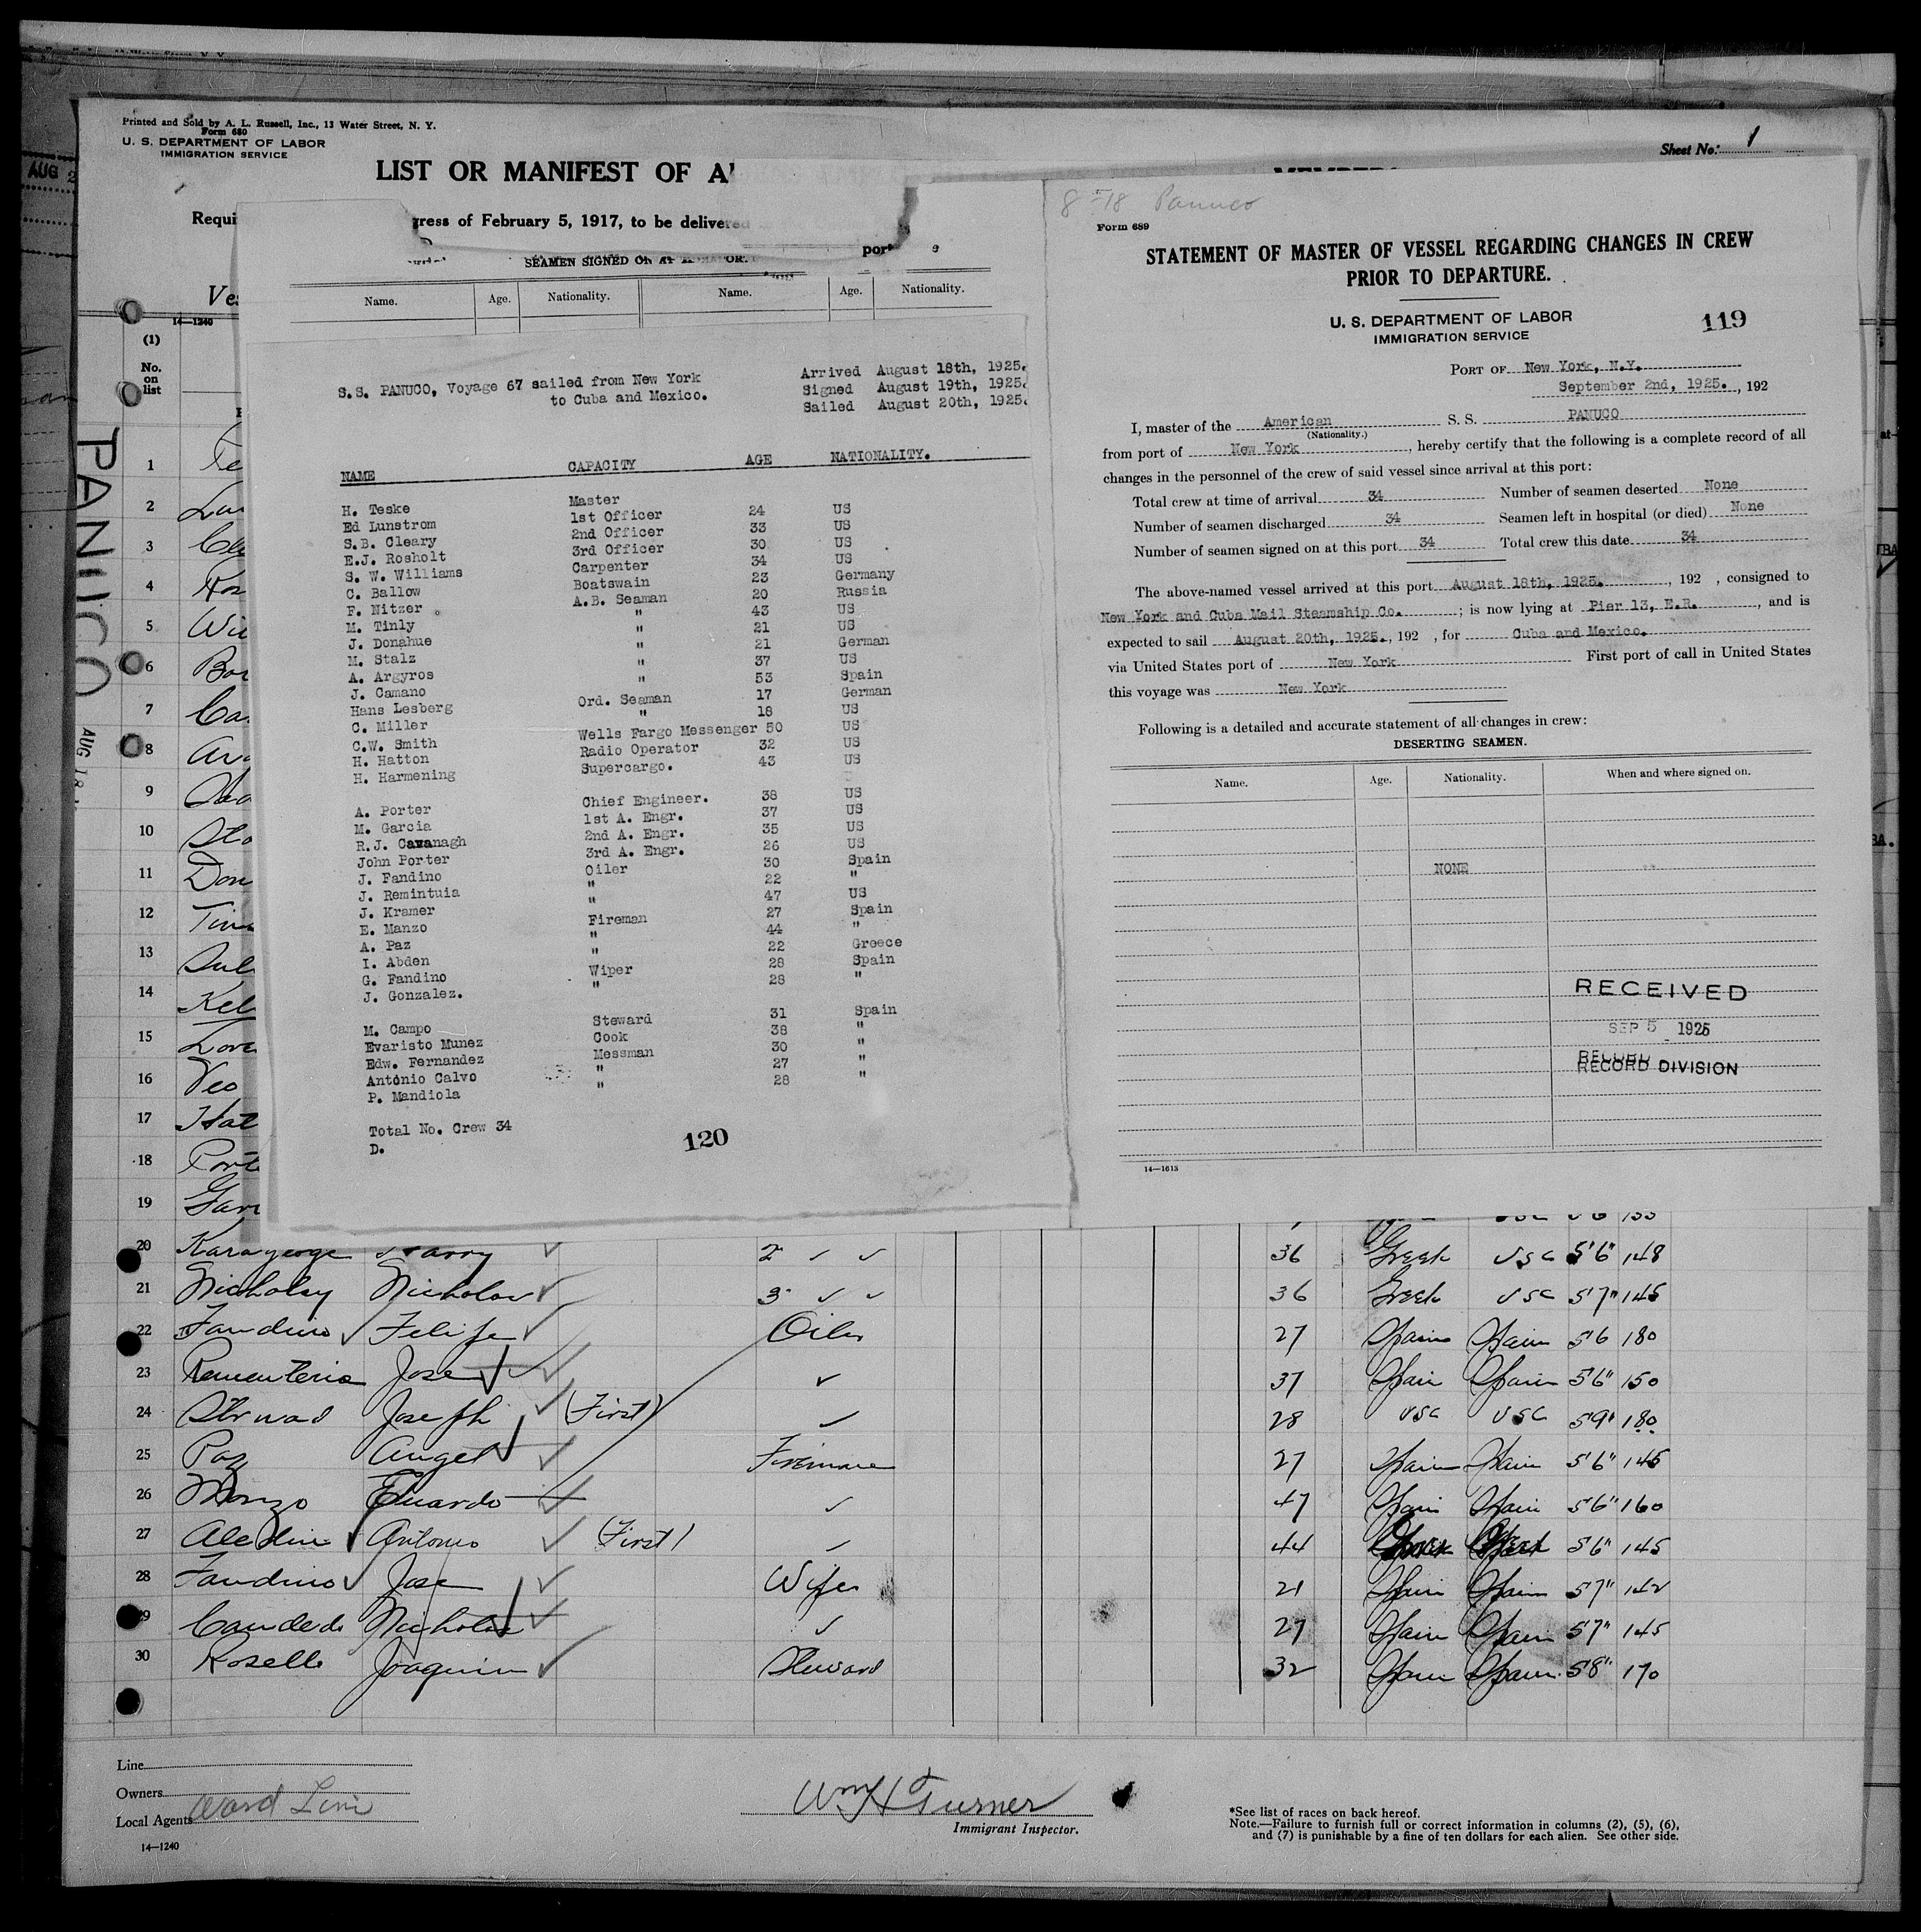 Printed and Sold by A. L. Russell, Inc., 13 Water Street, N. Y.
Form 680
U. S. DEPARTMENT OF LABOR
IMMIGRATION SERVICE
Sheet No. 1
LIST OR MANIFEST OF A
AUG 2
Requi
gress of February 5, 1917, to be delivered
port
SEAMEN SIGNED ON AT
Name. Age. Nationality. Name. Age. Nationality.
Ves
14—1240
(1)
No. on list
PANUCO
AUG 18
S.S. PANUCO, Voyage 67 sailed from New York
to Cuba and Mexico.
Arrived August 18th, 1925.
Signed August 19th, 1925.
Sailed August 20th, 1925.
NAME CAPACITY AGE NATIONALITY.
H. Teske Master 24 US
Ed Lunstrom 1st Officer 33 US
S.B. Cleary 2nd Officer 30 US
E.J. Rosholt 3rd Officer 34 US
S. W. Williams Carpenter 23 Germany
C. Ballow Boatswain 20 Russia
F. Nitzer A.B. Seaman 43 US
M. Tinly " 21 US
J. Donahue " 21 German
M. Stalz " 37 US
A. Argyros " 53 Spain
J. Camano " 17 German
Hans Lesberg Ord. Seaman 18 US
C. Miller " 50 US
C.W. Smith Wells Fargo Messenger 32 US
H. Hatton Radio Operator 43 US
H. Harmening Supercargo.
A. Porter Chief Engineer. 38 US
M. Garcia 1st A. Engr. 37 US
R.J. Cavanagh 2nd A. Engr. 35 US
John Porter 3rd A. Engr. 26 US
J. Fandino Oiler 30 Spain
J. Remintuia " 22 "
J. Kramer " 47 US
E. Manzo Fireman 27 Spain
A. Paz " 44 "
I. Abden " 22 Greece
G. Fandino Wiper 28 Spain
J. Gonzalez. " 28 "
M. Campo Steward 31 Spain
Evaristo Munez Cook 38 "
Edw. Fernandez Messman 30 "
Antonio Calvo " 27 "
P. Mandiola " 28 "
Total No. Crew 34
D.
120
8-18 Panuco
Form 689
STATEMENT OF MASTER OF VESSEL REGARDING CHANGES IN CREW
PRIOR TO DEPARTURE.
U. S. DEPARTMENT OF LABOR
IMMIGRATION SERVICE
119
PORT OF New York, N.Y.
September 2nd, 1925. , 192
I, master of the American S. S. PANUCO
(Nationality.)
from port of New York , hereby certify that the following is a complete record of all
changes in the personnel of the crew of said vessel since arrival at this port:
Total crew at time of arrival 34 Number of seamen deserted None
Number of seamen discharged 34 Seamen left in hospital (or died) None
Number of seamen signed on at this port 34 Total crew this date 34
The above-named vessel arrived at this port August 18th, 1925. , 192 , consigned to
New York and Cuba Mail Steamship Co. ; is now lying at Pier 13, E.R. , and is
expected to sail August 20th, 1925. , 192 , for Cuba and Mexico.
via United States port of New York First port of call in United States
this voyage was New York
Following is a detailed and accurate statement of all changes in crew:
DESERTING SEAMEN.
Name. Age. Nationality. When and where signed on.
NONE
RECEIVED
SEP 5 1925
RECORD DIVISION
14—1613
1 Te
2 Lun
3 Cle
4 Ros
5 Wil
6
7 Ca
8
9
10
11 Don
12
13
14 Kel
15
16
17 Hat
18 Porte
19 Gar
20 Karageorge Harry 2 36 Greek USC 5'6" 148
21 Nicholay Nicholas 3 36 Greek USC 5'7" 145
22 Fandino Felipe Oiler 27 Spain Spain 5'6 180
23 Rementeria Jose 37 Spain Spain 5'6" 150
24 Joseph (First) 28 USC USC 5'9" 180
25 Paz Angel Fireman 27 Spain Spain 5'6" 145
26 Manzo Eduardo 47 Spain Spain 5'6" 160
27 Antonio (First) 44 5'6" 145
28 Fandino Jose Wiper 21 Spain Spain 5'7" 142
29 Nicholas 27 Spain Spain 5'7" 145
30 Roselle Joaquin Steward 32 Spain Spain 5'8" 170
Line
Owners
Local Agents Ward Line
14—1240
Wm H Turner
Immigrant Inspector.
*See list of races on back hereof.
Note.—Failure to furnish full or correct information in columns (2), (5), (6),
and (7) is punishable by a fine of ten dollars for each alien. See other side.